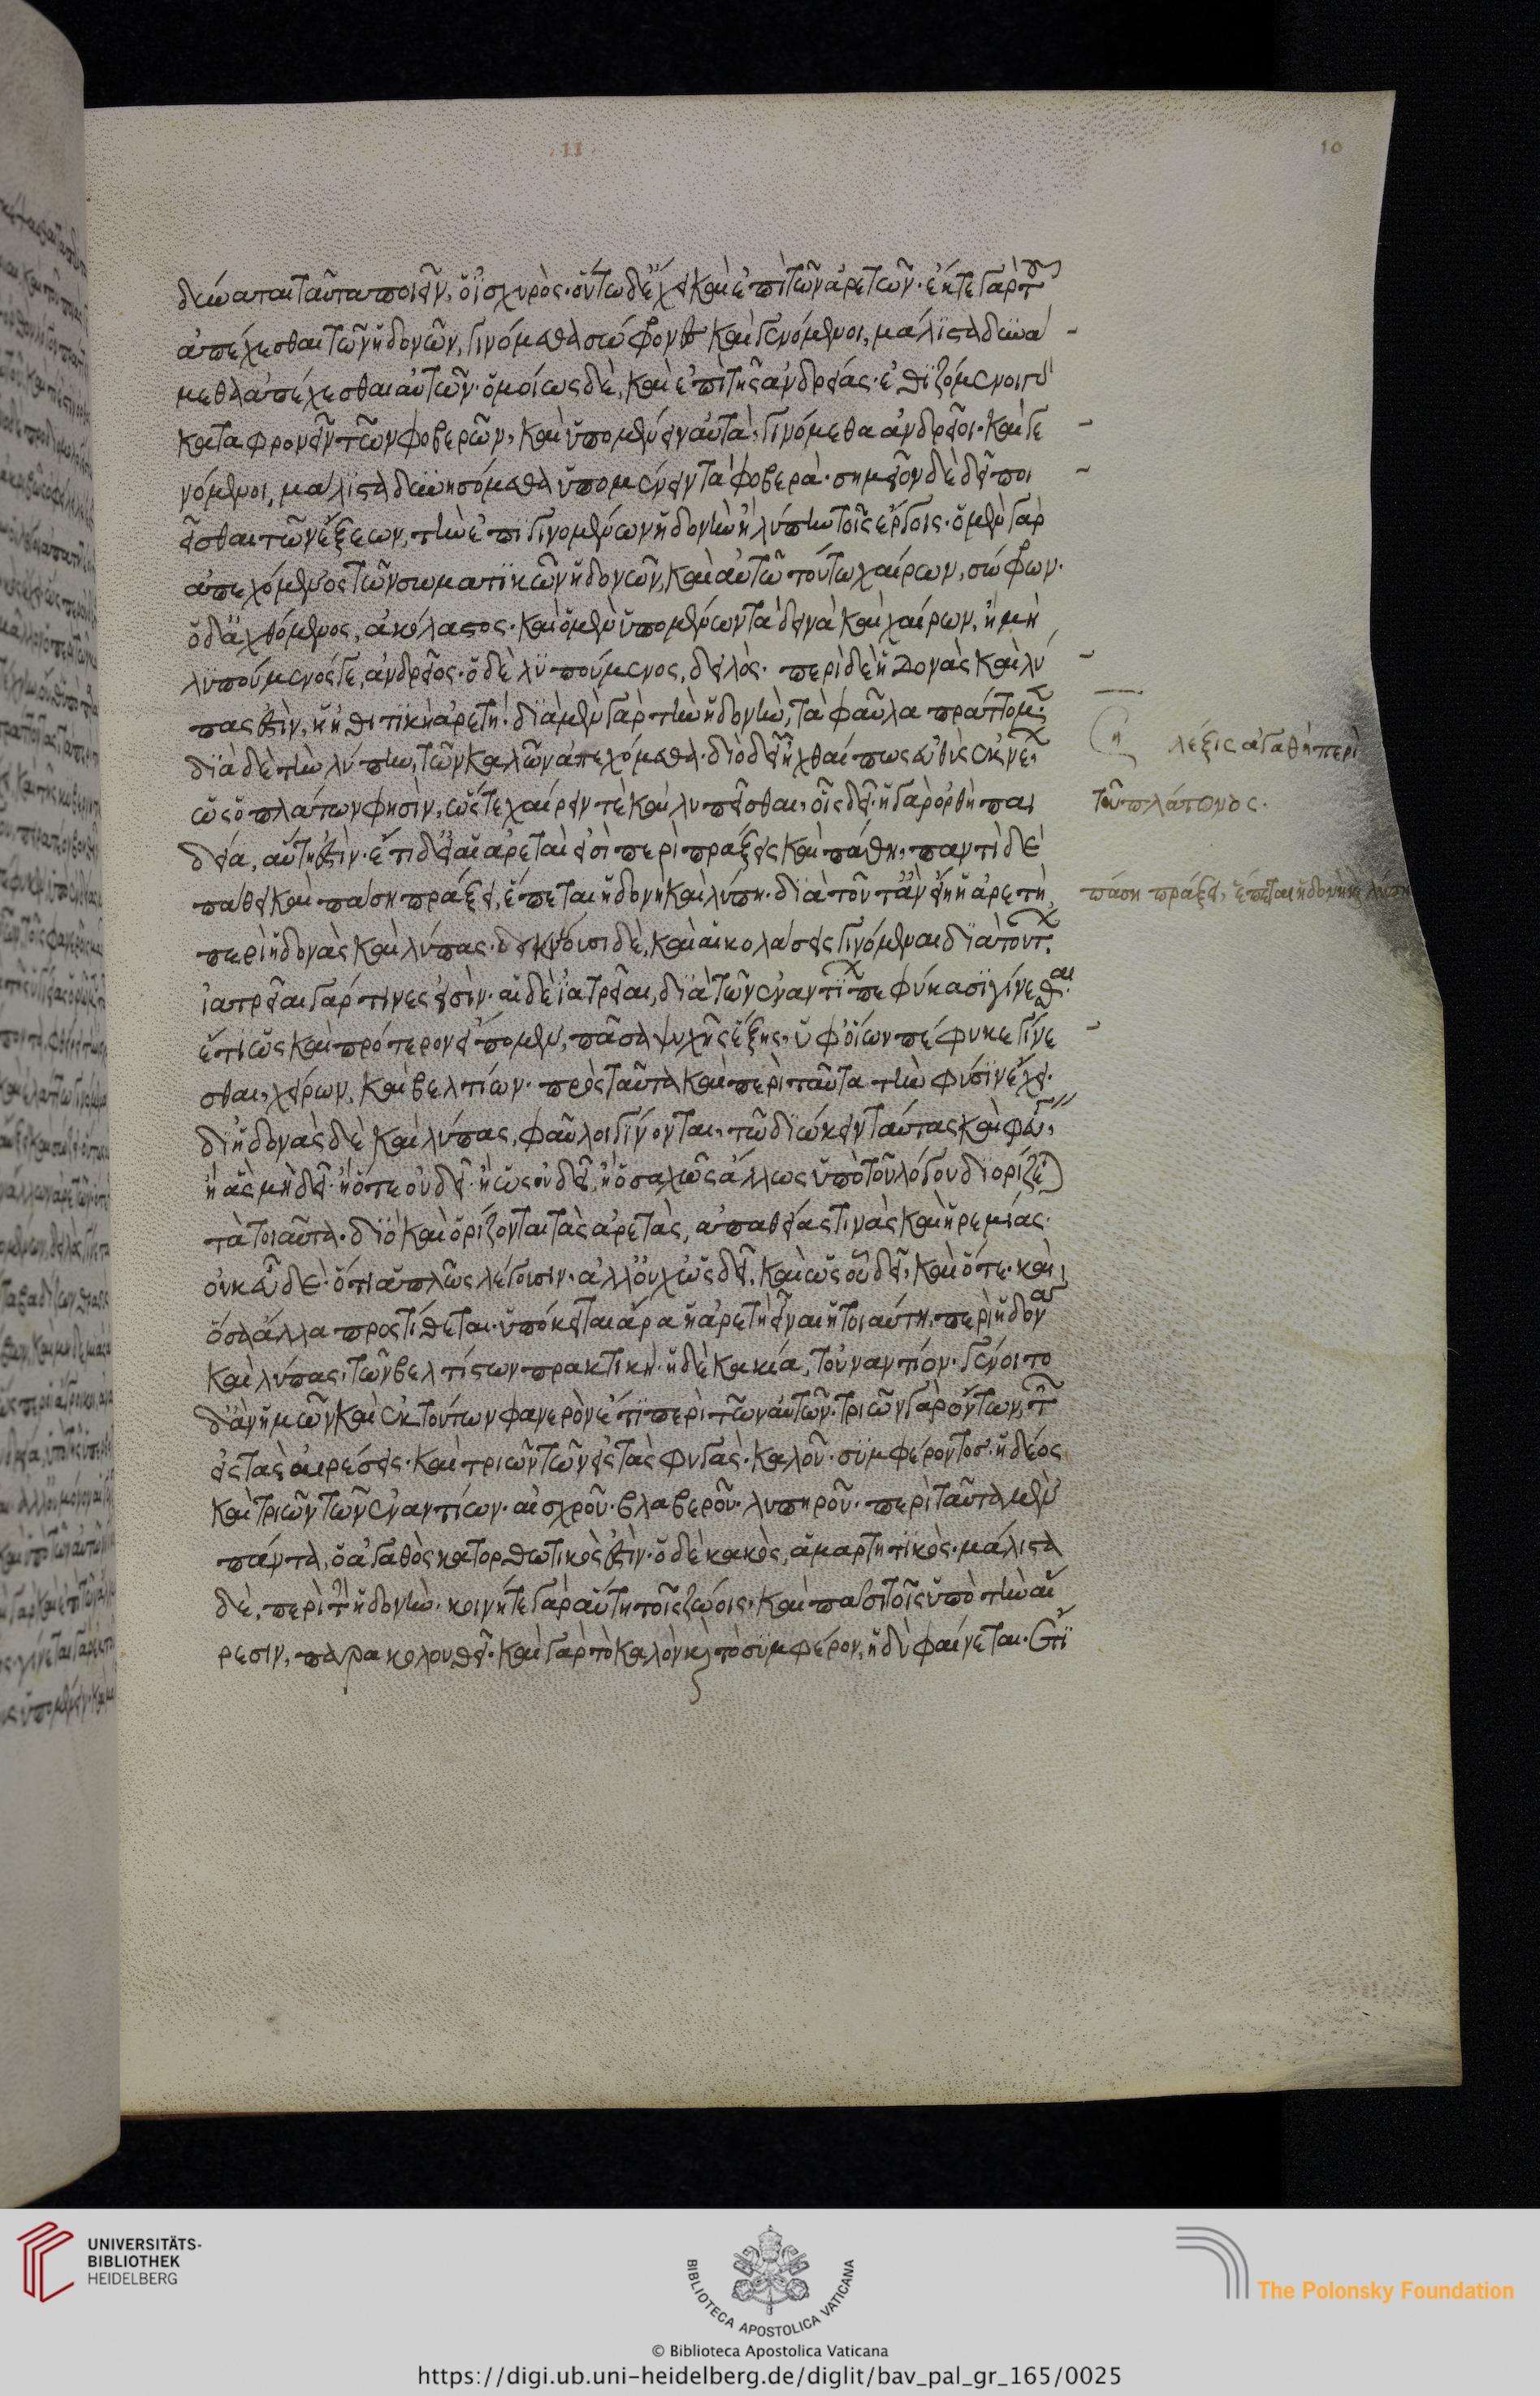 11
10
δύναται ταῦτα ποιεῖν, ὁ ἰσχυρός. οὕτω δ' ἔχει καὶ ἐπὶ τῶν ἀρετῶν. ἔκ τε γὰρ τοῦ
ἀπέχεσθαι τῶν ἡδονῶν, γινόμεθα σώφρονες καὶ γενόμενοι, μάλιστα δυνά
μεθα ἀπέχεσθαι αὐτῶν. ὁμοίως δὲ, καὶ ἐπὶ τῆς ἀνδρείας. ἐθιζόμενοι γὰρ
καταφρονεῖν τῶν φοβερῶν, καὶ ὑπομένειν αὐτὰ, γινόμεθα ἀνδρεῖοι. καὶ γε
νόμενοι, μάλιστα δυνησόμεθα ὑπομένειν τὰ φοβερά. σημεῖον δὲ δεῖ ποι
εῖσθαι τῶν ἕξεων, τὴν ἐπιγινομένων ἡδονὴν ἢ λύπην τοῖς ἔργοις. ὁ μὲν γὰρ
ἀπεχόμενος τῶν σωματικῶν ἡδονῶν, καὶ αὐτῷ τούτῳ χαίρων, σώφρων.
ὁ δ' ἀχθόμενος, ἀκόλαστος. καὶ ὁ μὲν ὑπομένων τὰ δεινὰ καὶ χαίρων, ἢ μὴ
λυπούμενός γε, ἀνδρεῖος. ὁ δὲ λυπούμενος, δειλός. περὶ δὲ ἡδονὰς καὶ λύ
πας ἐστὶν, ἡ ἠθιτικὴ ἀρετή. διὰ μὲν γὰρ τὴν ἡδονὴν, τὰ φαῦλα πράττομεν.
διὰ δὲ τὴν λύπην, τῶν καλῶν ἀπεχόμεθα. διὸ δεῖ ἦχθαί πως εὐθὺς ἐκ νέων,
ὡς ὁ πλάτων φησὶν, ὥστε χαίρειν τὲ καὶ λυπεῖσθαι, οἷς δεῖ. ἡ γὰρ ὀρθὴ παι
δεία, αὕτη ἐστίν. ἔτι δ' εἰ αἱ ἀρεταὶ εἰσὶ περὶ πράξεις καὶ πάθη, παντὶ δὲ
πάθει καὶ πάσῃ πράξει, ἕπεται ἡδονὴ καὶ λύπη. διὰ τοῦτ' ἂν εἴη ἡ ἀρετὴ,
περὶ ἡδονὰς καὶ λύπας. δεικνύουσι δὲ, καὶ αἱ κολάσεις γινόμεναι διὰ τούτων.
ἰατρεῖαι γάρ τινές εἰσιν. αἱ δὲ ἰατρεῖαι, διὰ τῶν ἐναντίων πεφύκασι γίνεσθαι.
ἔτι ὡς καὶ πρότερον εἴπομεν, πᾶσα ψυχῆς ἕξις, ὑφ' οἵων πέφυκε γίνε
σθαι, χείρων, καὶ βελτίων. πρὸς ταῦτα καὶ περὶ ταῦτα τὴν φύσιν ἔχει.
δι' ἡδονὰς δὲ καὶ λύπας, φαῦλοι γίνονται, τῷ διώκειν ταύτας καὶ φεύγειν,
ἢ ἃς μὴ δεῖ. ἢ ὅτε οὐ δεῖ. ἢ ὡς οὐ δεῖ, ἢ ὁσαχῶς ἄλλως ὑπὸ τοῦ λόγου διορίζεται
τὰ τοιαῦτα. διὸ καὶ ὁρίζονται τὰς ἀρετὰς, ἀπαθείας τινὰς καὶ ἠρεμίας.
οὐκ εὖ δέ. ὅτι ἁπλῶς λέγουσιν, ἀλλ' οὐχ ὡς δεῖ, καὶ ὡς οὐ δεῖ, καὶ ὅτε. καὶ
ὅσα ἄλλα προστίθεται. ὑπόκειται ἄρα ἡ ἀρετὴ εἶναι ἡ τοιαύτη, περὶ ἡδονὰς
καὶ λύπας, τῶν βελτίστων πρακτική. ἡ δὲ κακία, τοὐναντίον. γένοιτο
δ' ἂν ἡμῶν καὶ ἐκ τούτων φανερὸν ἔτι περὶ τῶν αὐτῶν. τριῶν γὰρ ὄντων, τῶν
εἰς τὰς αἱρέσεις. καὶ τριῶν τῶν εἰς τὰς φυγάς. καλοῦ. συμφέροντος. ἡδέος
καὶ τριῶν τῶν ἐναντίων. αἰσχροῦ. βλαβεροῦ. λυπηροῦ. περὶ ταῦτα μὲν
πάντα, ὁ ἀγαθὸς κατορθωτικός ἐστιν. ὁ δὲ κακὸς, ἁμαρτητικός. μάλιστα
δὲ, περὶ τὴν ἡδονήν. κοινή τε γὰρ αὕτη τοῖς ζώοις, καὶ πᾶσι τοῖς ὑπὸ τὴν αἵ
ρεσιν, παρακολουθεῖ. καὶ γὰρ τὸ καλὸν καὶ τὸ συμφέρον, ἡδὺ φαίνεται. ἔτι
λέξις ἀγαθὴ περὶ
τοῦ πλάτωνος.
πάσῃ πράξει, ἕπεται ἡδονὴ καὶ λύπη
UNIVERSITÄTS-
BIBLIOTHEK
HEIDELBERG
BIBLIOTECA APOSTOLICA VATICANA
The Polonsky Foundation
© Biblioteca Apostolica Vaticana
https://digi.ub.uni-heidelberg.de/diglit/bav_pal_gr_165/0025